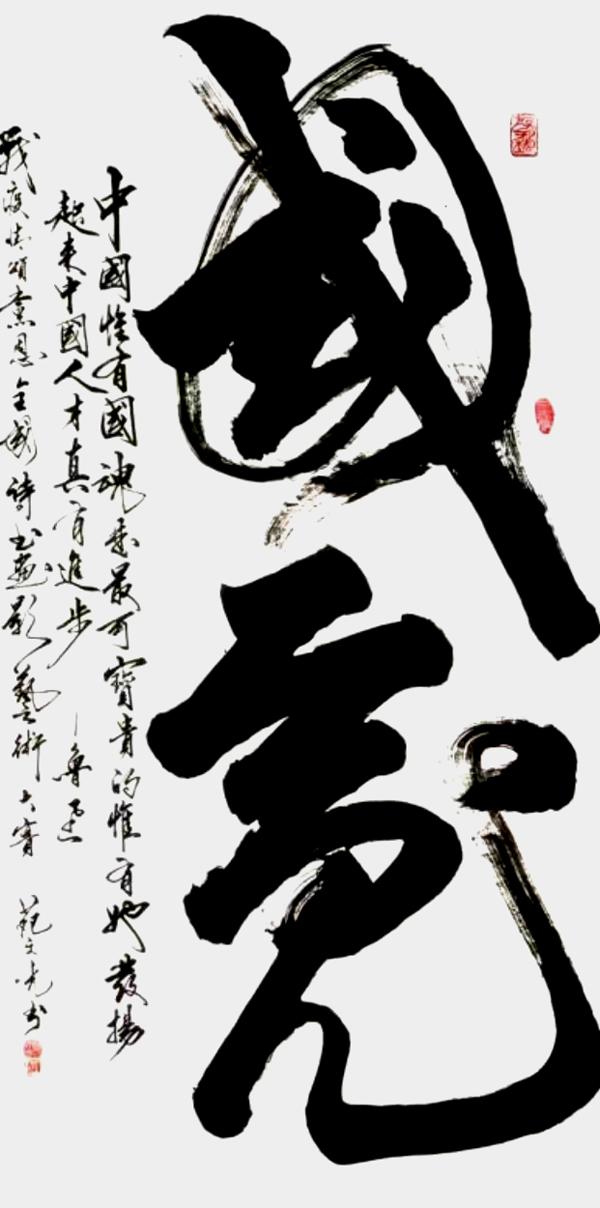 國魂
中國惟有國魂是最可寶貴的惟有她發揚
起来中國人才真有進步 — 魯迅
戰疫情頌黨恩全國詩书畫影藝術大賽 范文光书